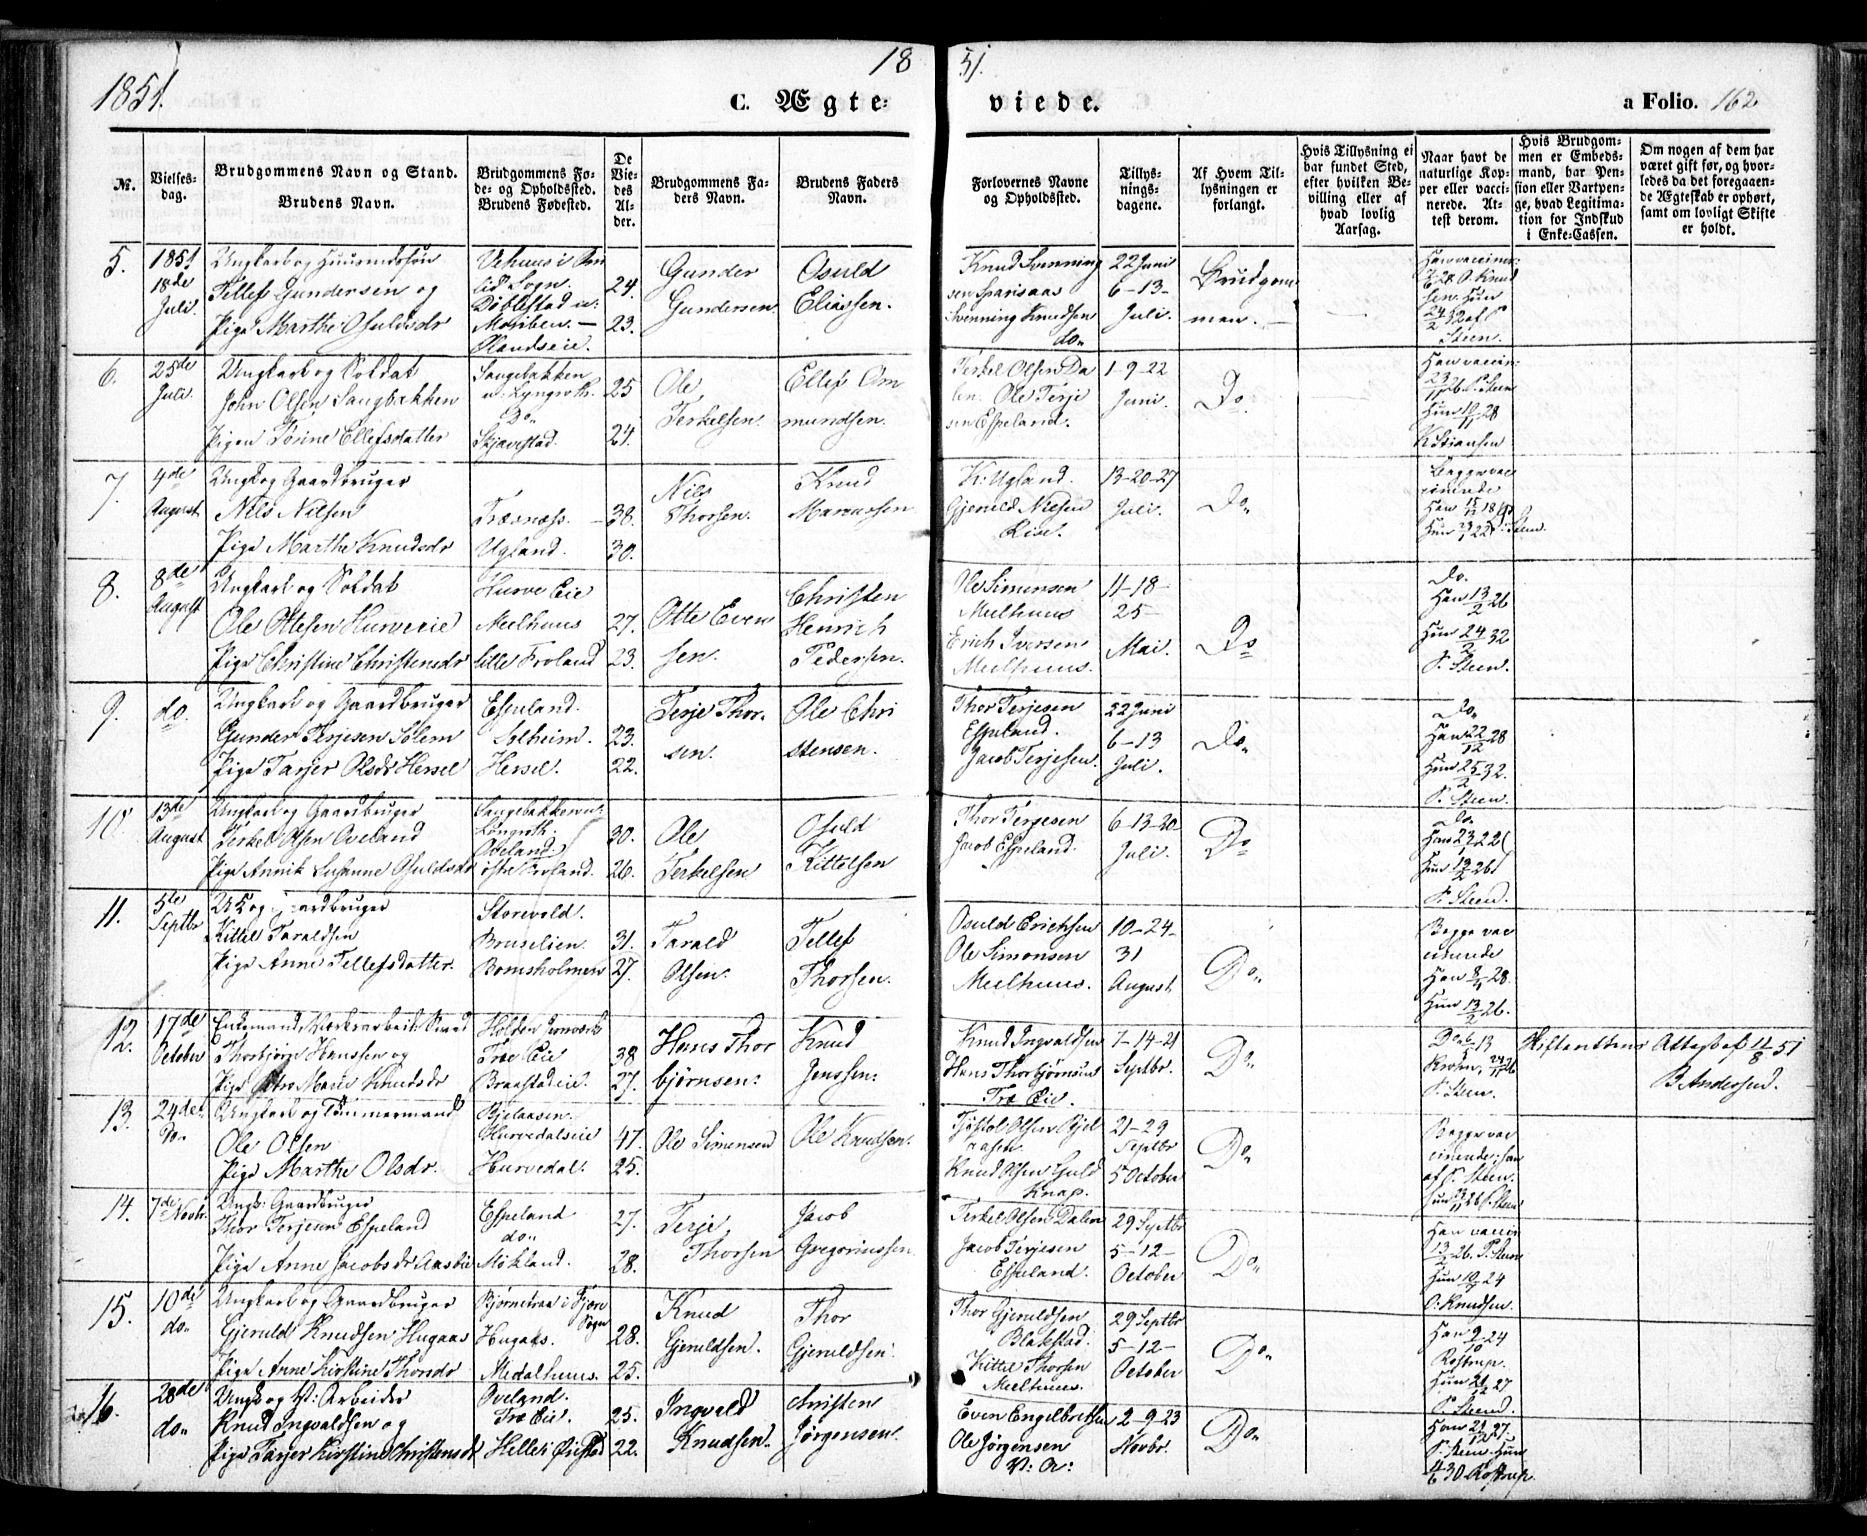 1851.
18
51.
C. Ægte-
viede.
a Folio. 162
No.
Vielses-
dag.
Brudgommens Navn og Stand.
Brudens Navn.
Brudgommens Fø-
de- og Opholdssted.
Brudens Fødested.
De
Vie-
des
Al-
der.
Brudgommens Fa-
ders Navn.
Brudens Faders
Navn.
Forlovernes Navne
og Opholdssted.
Tillys-
nings-
dagene.
Af Hvem Til-
lysningen er
forlangt.
Hvis Tillysning ei
har fundet Sted,
efter hvilken Be-
villing eller af
hvad lovlig
Aarsag.
Naar havt de
naturlige Kop-
per eller vacci-
nerede. At-
test derom.
Hvis Brudgom-
men er Embeds-
mand, har Pen-
sion eller Vartpen-
ge, hvad Legitima-
tion for Indskud
i Enke-Cassen.
Om nogen af dem har
været gift før, og hvor-
ledes da det foregaaen-
de Ægteskab er ophørt,
samt om lovligt Skifte
er holdt.
5.
1851
18de
Juli.
Ungkarl og Huusmandssøn
Tellef Gundersen og
Pige Marthe Osuldsdr
Vehuus i Øm
lid Sogn.
Døblestad u.
Mariben. —
Ølandseie.
24.
23.
Gunder
Gundersen.
Osuld
Eliassen.
Knud Svenning
sen Sparisaas
Svenning Knudsen
do„
22 Juni
6–13–
Juli.
Brudgom
men. —
sen. Hun
24/2 32 af P
Steen.
6.
25de
Juli.
Ungkarl og Soldat
John Olsen Saugbakken
Pigen Torine Ellefsdatter
Saugebakken
u. Lyngroth.
Do„
Skjævestad.
25
24.
Ole
Terkelsen.
Ellef Øm
mundsen.
Terkel Olsen Da
len. Ole Terje
sen Espeland.
1–9–22
Juni.
Do
23/11 26 P. Steen
Hun 10/11 28
Kstiansen
7.
4de
August
Ungk og Gaardbruger
Nils Nilsen
Pige Marthe Knudsdr
Trævnæss. —
Ugland.
38.
30.
Nils
Thorsen.
Knud
Marcussen
K: Ugland.
Gjeruld Nielsen
Rise.
13–20–27
Juli.
Do„
Begge vac
cinerede
8.
8de
August
Ungkarl og Soldat
Ole Ottesen Hurveeie
Pige Christine Christensdr
Hurve Eie
Meelhuus
lille Froland
27.
23.
Otte Even
sen.
Christen
Henrich
Pedersen.
Ole Simonsen
Meelhuus
Erich Iversen
Meelhuus.
11–18–
25–
Mai.
Do
Do.
Han 13/2 26
Hun 24/2 32
P. Steen.
9.
do.
Ungkarl og Gaardbruger
Gunder Terjesen Solem
Pige Tarjer Olsdr Hersel
Espeland.
Solheim.
Hersel.
23.
22.
Terje Thor-
sen.
Ole Chri
stensen.
Thor Terjesen
Espeland.
Jacob Terjesen.
22 Juni
6–13
Juli.
Do„
Do„
Han 22/12 28
Hun 25/2 32.
P. Steen.
10.
13de
August
Ungkarl og Gaardbruger
Terkel Olsen Oveland
Pige Annik Susanne Osuldsdr
Saugebakken u:
Løngroth.
Oveland
østre Froland.
30.
26.
Ole
Terkelsen
Osuld
Kittelsen
Thor Terjesen
Jacob Espeland.
6–13–20–
Juli.
Do
do„
Hun 13/2 26
P. Steen.
11.
5te
Septbr
Ungk og Gaardbruger
Kittel Taraldsen
Pige Anne Tellefsdatter.
Storevold.
Bruselien.
Bomsholmen
31.
27.
Tarald
Olsen.
Tellef
Thorsen.
Osuld Erichsen
Ole Simonsen
Meelhuus.
10–24–
31
August
Do„
Begge vac
cinerede
Han 8/11 28.
Hun 13/2 26.
12.
17de
October
Enkemand, Værksarbeid. Smed
Thorbjørn Hanssen og
Pige Marie Knudsdr
Holden Jernværk
Træ Eie
Braastadeie.
38
27.
Hans Thor
bjørnsen:
Knud
Jenssen:
Knud Ingvaldsen
Hans Thorbjørnsen
Træ Eie.
7–14–21
Septbr.
Do„
P. Steen.
Skifterettens Attest af 11/8 51
B Andersen.
13.
24de„
Do„
Ungkarl og Tømmermand
Ole Olsen
Pige Marthe Olsdr.
Bjelaasen.
Hurvedalseie
Hurvedal.
47.
25.
Ole Simonsen
Ole Knudsen.
Tjøstol Olsen Bjel
aasen.
Knud Olsen Guld
Knap.
21–29
Septbr
5 October
Do„
Begge vac
cinerede: han
af P. Steen.
14.
7de Novbr.
Ungk: Gaardbruger
Thor Terjesen Espeland
Pige Anne Jacobsdr Aasbie
Espeland
do„
Møkland.
27.
28.
Terje
Thorsen
Jacob
Gregoriussen
Terkel Olsen Dalen
Jacob Terjesen
Espeland.
29 Septbr
5–12–
October
Do„
Han vacci
13/2 26. P. Steen
Hun 10/9 24
O: Knudsen.
15.
10de
do„
Ungkarl og Gaardbruger
Gjeruld Knudsen Hugaas
Pige Anne Kirstine Thorsdr
Bjørnetraa i Fjære
Sogn
Hugaas.
Medalhuus.
28.
25.
Knud
Gjeruldsen.
Thor
Gjeruldsen.
Thor Gjeruldsen
Blakstad.
Kittil Thorsen
Meelhuus.
29 Septbr
5–12–
October
Do„
Han 9/10 24
Rostrup.
Hun 21/12 27
P. Steen.
16.
28de
do„
Ungk og V: Arbeider
Knud Ingvaldsen og
Pige Tarjer Kirstine Christensdr
Oveland.
Træ Eie.
Hillet: Øiestad
25.
22.
Ingvald
Knudsen.
Christen
Jørgensen.
Even Engelbretsen
Ole Jørgensen
V: A:
2–9–23
Novbr.
Do„
Han 21/12 27.
P. Steen. Hun
4/6 30 Rostrup.